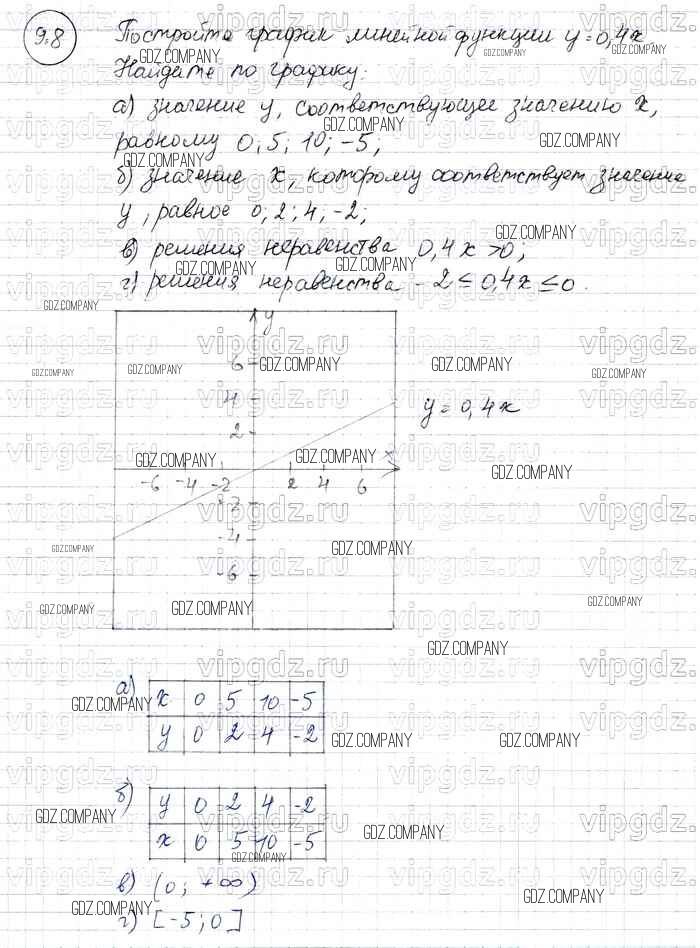 9.8 Постройте график линейной функции y=0,4x
Найдите по графику:
а) значение y, соответствующее значению x,
равному 0; 5; 10; -5;
б) значение x, которому соответствует значение
y, равное 0; 2; 4; -2;
в) решения неравенства 0,4x >0;
г) решения неравенства -2 ≤ 0,4x ≤ 0.
y
6
4 y=0,4x
2
x
-6 -4 -2 2 4 6
-2
-4
-6
а) x 0 5 10 -5
y 0 2 4 -2
б) y 0 2 4 -2
x 0 5 10 -5
в) (0; +∞)
г) [-5; 0]
GDZ.COMPANY
vipgdz.ru